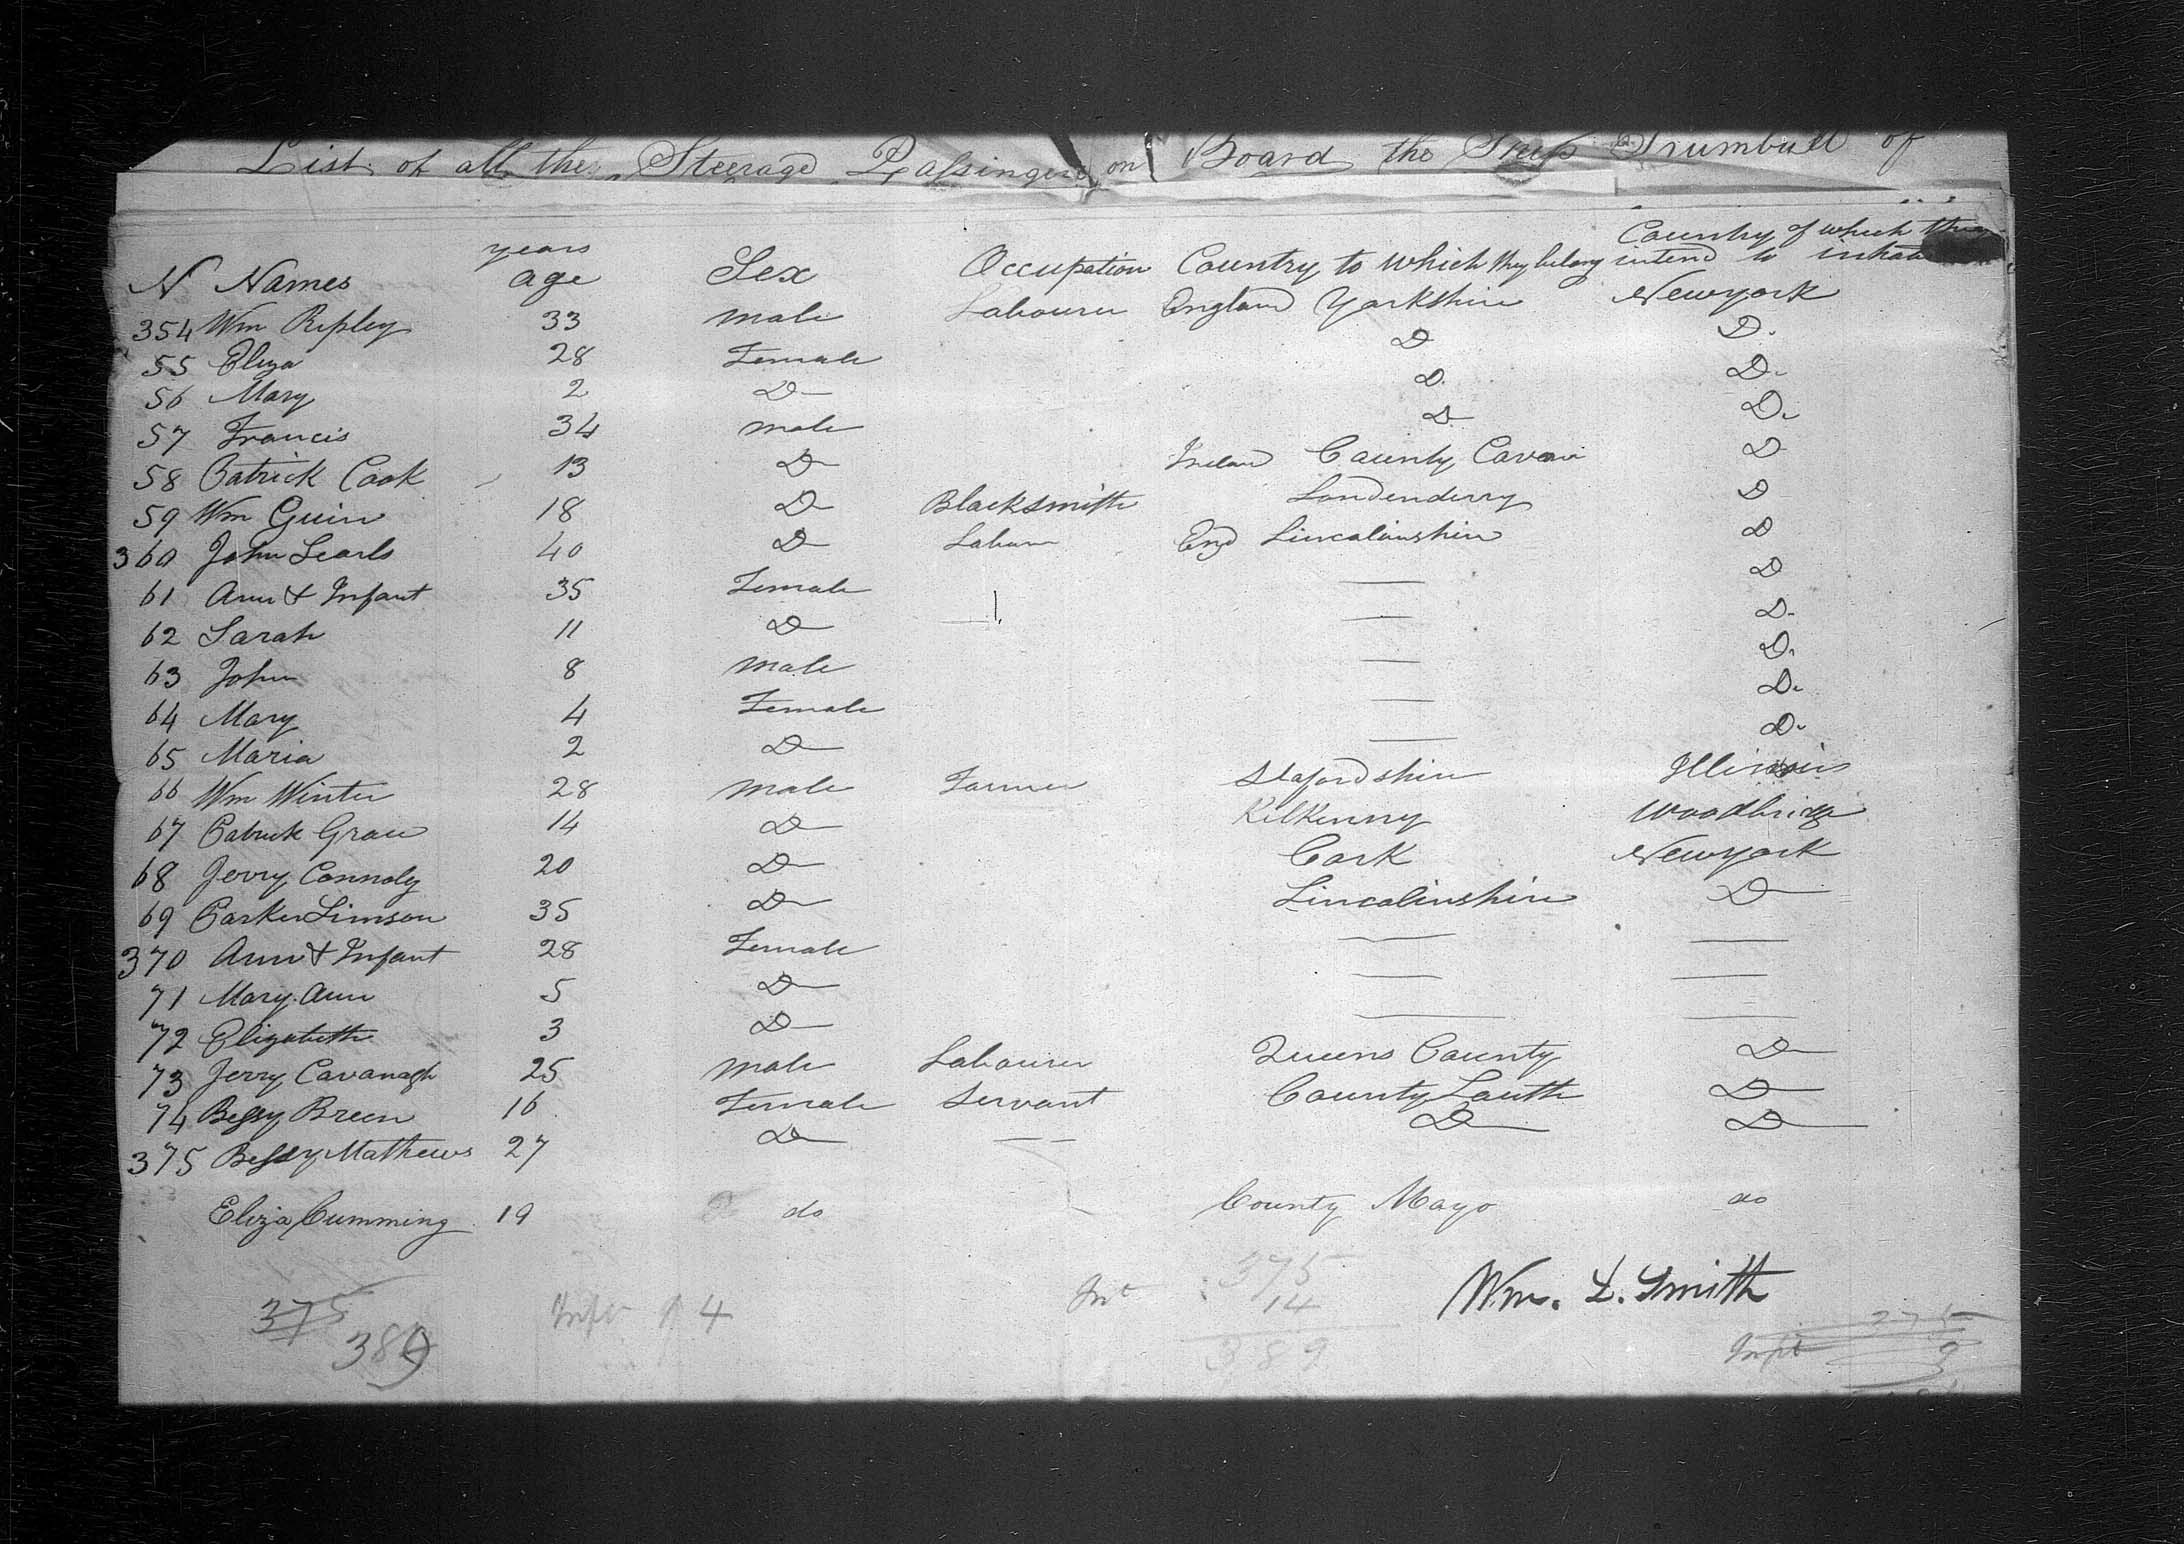 List of all the Steerage Passingers on Board the Ship Trumbull of
N Names years age Sex Occupation Country to which they belong Country of which they intend to inhab
354 Wm Ripley 33 male Labourer England Yorkshire Newyork
55 Eliza 28 Female D D.
56 Mary 2 D D. D.
57 Francis 34 male D D.
58 Patrick Cook 13 D Ireland County Cavan D
59 Wm Guin 18 D Blacksmith Londenderry D
360 John Searls 40 D Labour Eng Lincolinshire D
61 Ann & Infant 35 Female — D
62 Sarah 11 D — D.
63 John 8 male — D.
64 Mary 4 Female — D.
65 Maria 2 D — D.
66 Wm Winter 28 male Farmer Stafordshire Illinois
67 Patrick Grace 14 D Kilkenny Woodbridge
68 Jerry Connoly 20 D Cork Newyork
69 Parker Simson 35 D Lincolinshire D
370 Ann & Infant 28 Female — —
71 Mary Ann 5 D — —
72 Elizabeth 3 D — —
73 Jerry Cavanagh 25 male Labourer Queens County D
74 Bessy Breen 16 Female Servant County Louth D
375 Bessy Mathews 27 D — — D D
Eliza Cumming 19 do County Mayo do
375 Wm. L. Smith
14
389
375
389
Inft 14
Inft
375
Inft 9